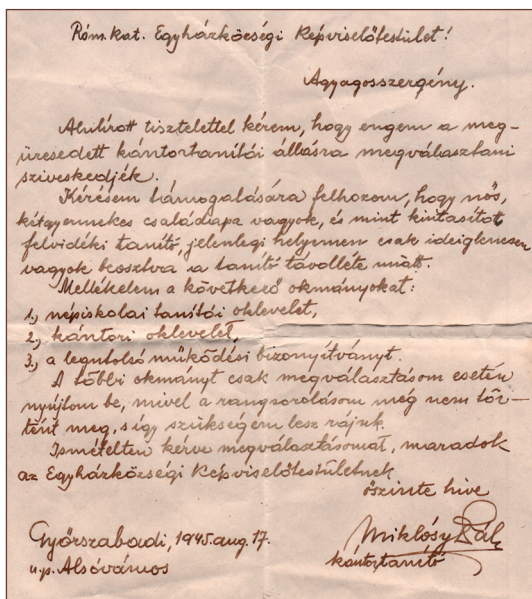 Róm. kat. Egyházközségi Képviselőtestület!
Agyagosszergény.
Alulírott tisztelettel kérem, hogy engem a meg-
üresedett kántortanítói állásra megválasztani
sziveskedjék.
Kérésem támogatására felhozom, hogy nős,
kétgyermekes családapa vagyok, és mint kiutasított
felvidéki tanító, jelenlegi helyemen csak ideiglenesen
vagyok beosztva a tanító távolléte miatt.
Mellékelem a következő okmányokat:
1., népiskolai tanítói oklevelet,
2., kántori oklevelet,
3., a legutolsó működési bizonyítványt.
A többi okmányt csak megválasztásom esetén
nyújtom be, mivel a rangsorolásom még nem tör-
tént meg, s így szükségem lesz rájuk.
Ismételten kérve megválasztásomat, maradok
az Egyházközségi Képviselőtestületnek
őszinte híve
Győrszabadi, 1945. aug. 17.
u.p. Alsóvámos
Miklósy Pál
kántortanító